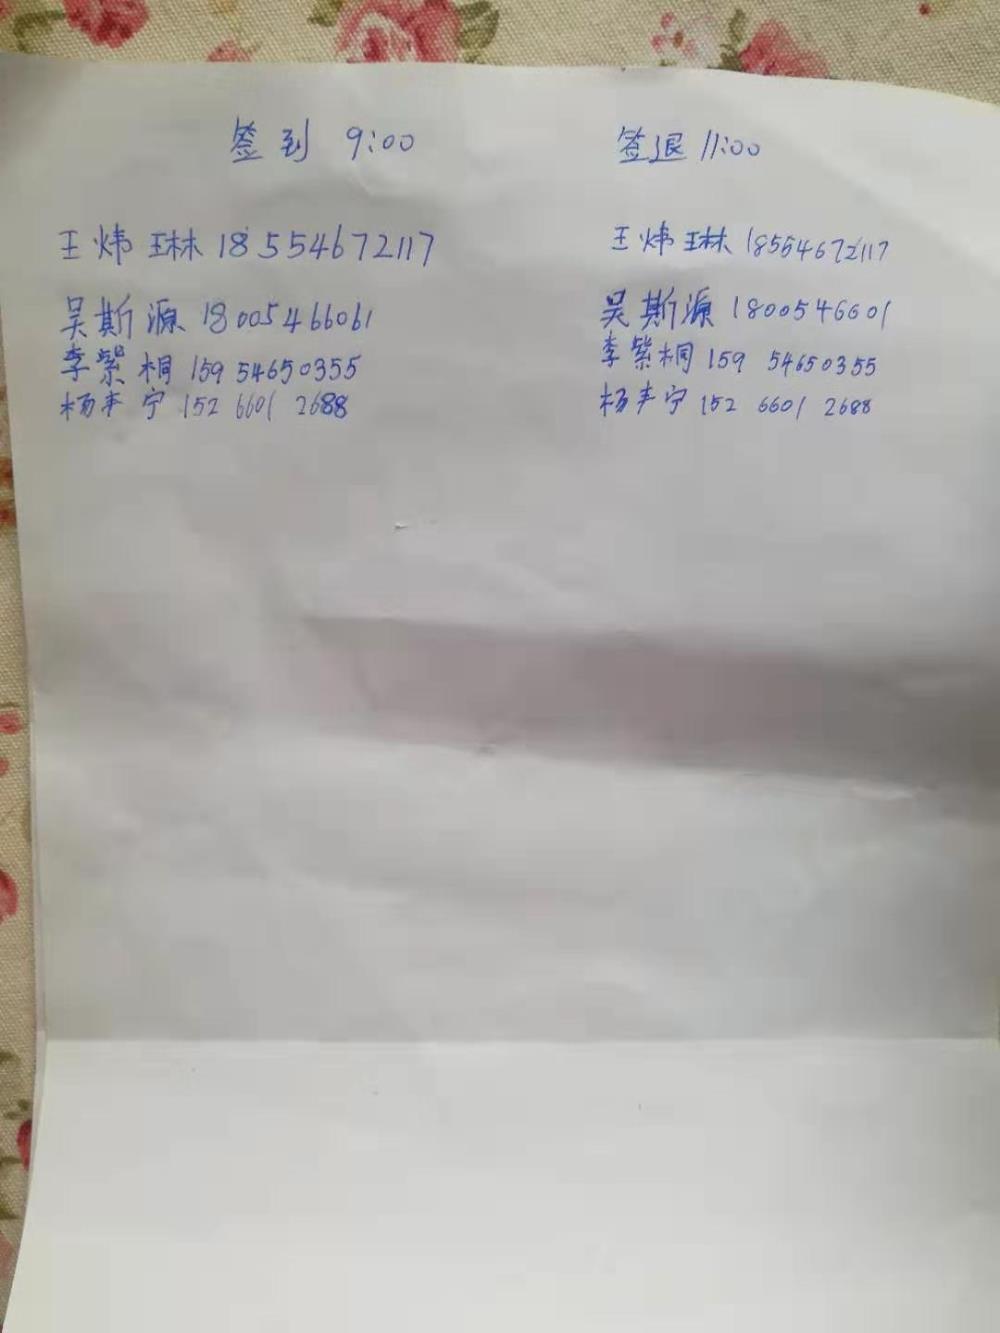 签到 9:00
签退 11:00
王炜琳 18554672117
吴斯源 18005466061
李紫桐 159 54650355
杨丰宁 152 6601 2688
王炜琳 18554672117
吴斯源 1800546601
李紫桐 159 54650355
杨丰宁 152 6601 2688